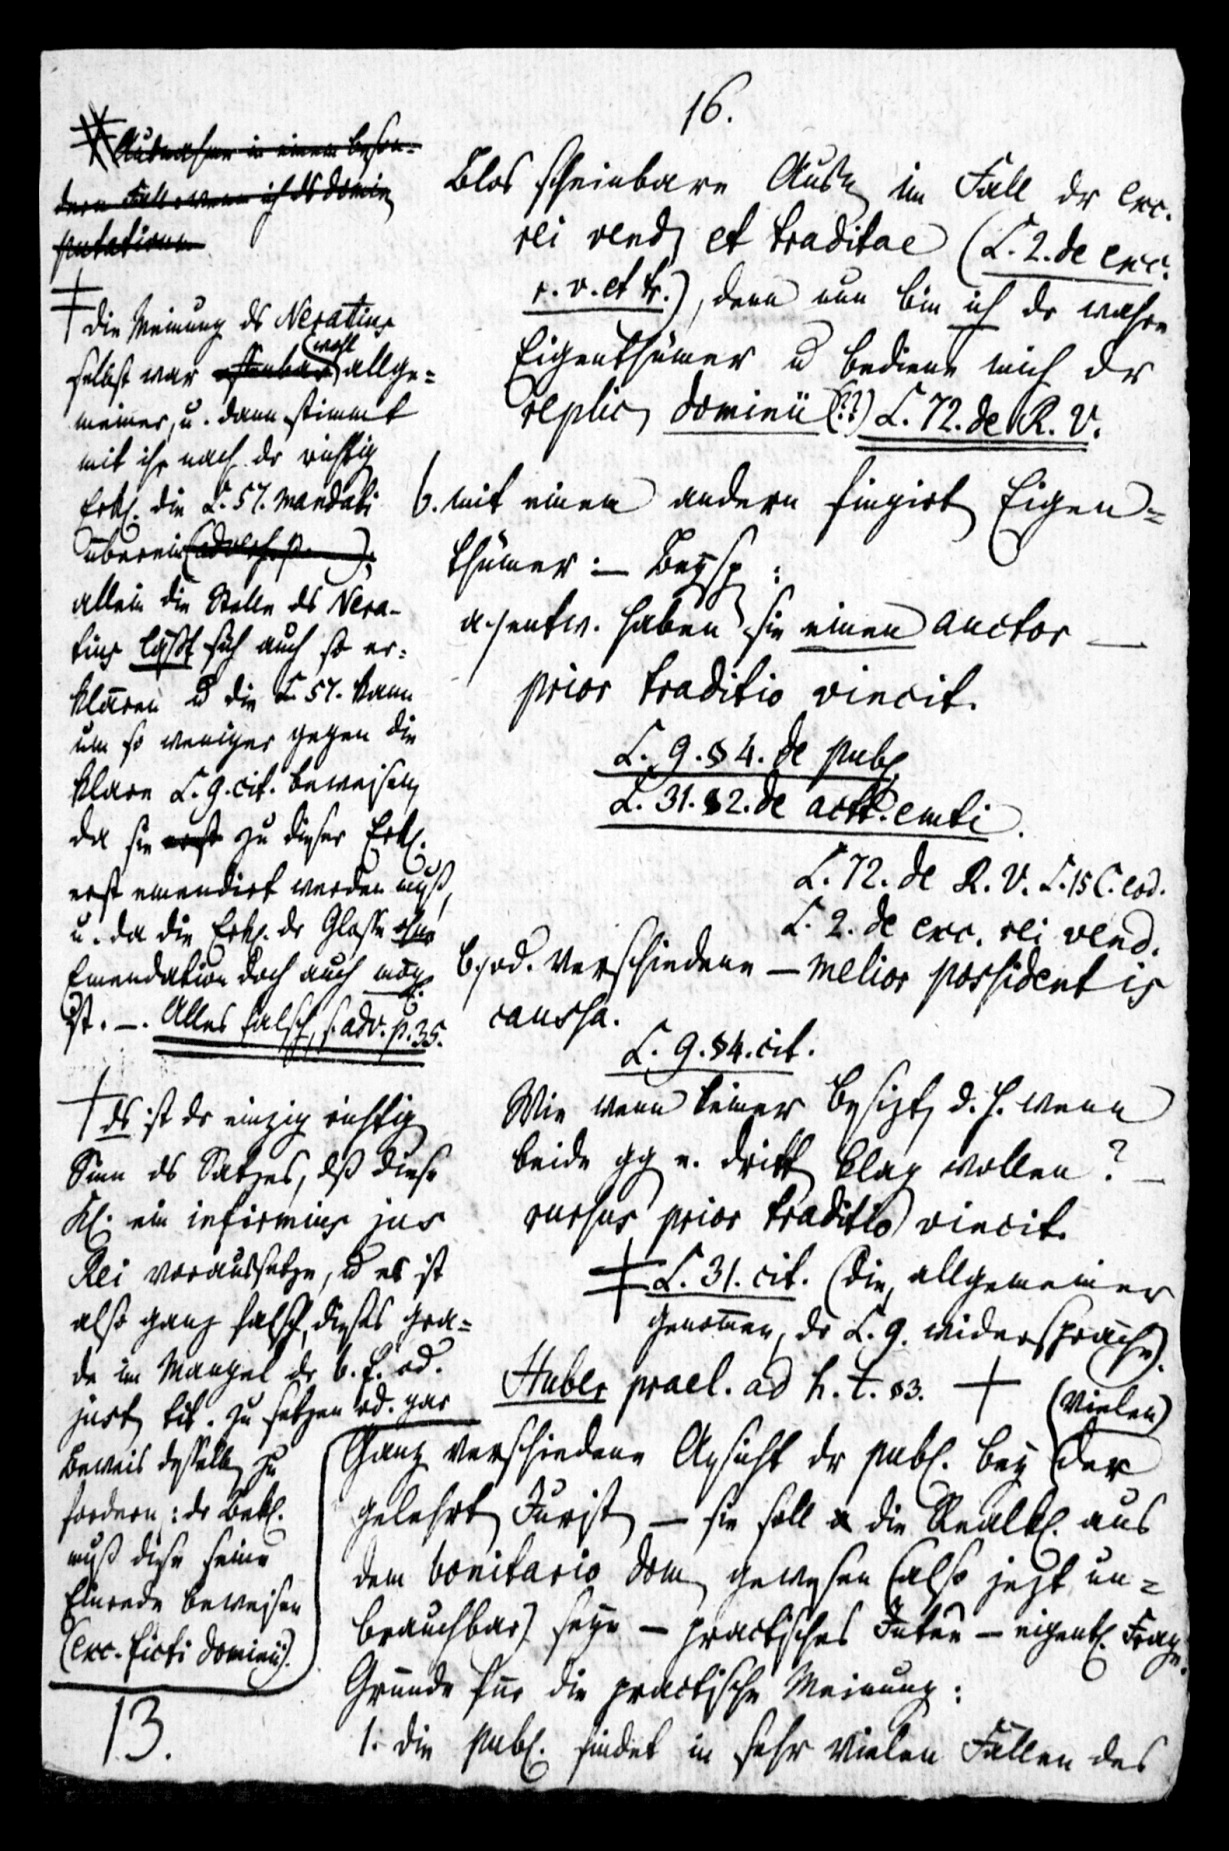 16.
Blos scheinbare Ausn. im Fall dr exc.
rei vend. et traditae (L. 2. de exc.
r. v. et tr.), denn nun bin ich dr wahre
Eigenthümer u bediene mich dr
replic. dominii (??) L. 72. de R. V.
b. mit einem andern fingirt. Eigen=
thümer: — Beysp.:
a.) entw. haben sie einen auctor —
prior traditio vincit.
L. 9. § 4. de publ.
L. 31. § 2. de act. emti.
L. 72. de R. V. L. 15 C. eod.
L. 2. de exc. rei vend.
b.) od. verschiedene — melior possident is
caussa.
L. 9. § 4. cit.
Wie wenn keiner besizt, d. h. wenn
beide gg e. dritt. klag. wollen? —
rursus prior traditio vincit.
‡ L. 31. cit. (die, allgemeiner
genommen, dr L. 9. widerspräche).
Huber prael. ad h. t. § 3. +
(Vielen)
Ganz verschiedene Ansicht dr publ. bey der
gelehrt. Jurist. — sie soll die Realkl. aus
dem bonitario dom. gewesen (also jezt un=
brauchbar) seyn — practisches Inter. — eigentl. Frage.
Gründe für die practische Meinung:
1. die publ. findet in sehr vielen Fällen des
Ausnahme in einem beson=
dern Fall: wenn ich ds domin.
‡
die Meinung ds Neratius
selbst war wohl allge=
meiner, u. dann stimmt
mit ihr nach dr richtig.
Erkl. die L. 57. mandati
überein
allein die Stelle ds Nera-
tius läßt sich auch so er=
klären u die L. 57. kann
um so weniger gegen die
klare L. 9. cit. beweisen,
da sie erst zu dieser Erkl.
erst emendirt werden muß,
u. da die Erkl. dr Glosse ohne
Emendation doch auch mögl.
ist. —. Alles falsch, s. adv. p. 35.
+ ds ist dr einzig richtige
Sinn ds Satzes, dß diese
Kl. ein infirmius jus
Rei voraussetze, u es ist
also ganz falsch, dieses gra=
de im Mangel dr b. f. od.
just. tit. zu setzen od. gar
Beweis desselb. zu
fordern: dr Bekl.
muß diese seine
Einrede beweisen
(exc. ficti dominii).
13.